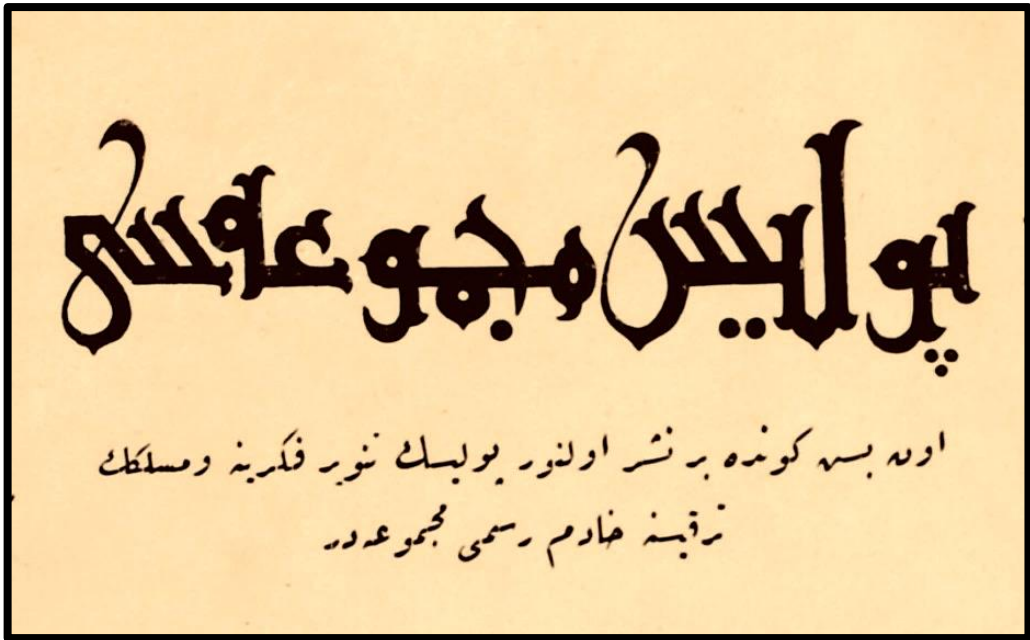 پوليس مجموعه‌سى
اون بش كونده بر نشر اولنور پوليسك تنوير فكرينه ومسلكك
ترقيسنه خادم رسمى مجموعه در